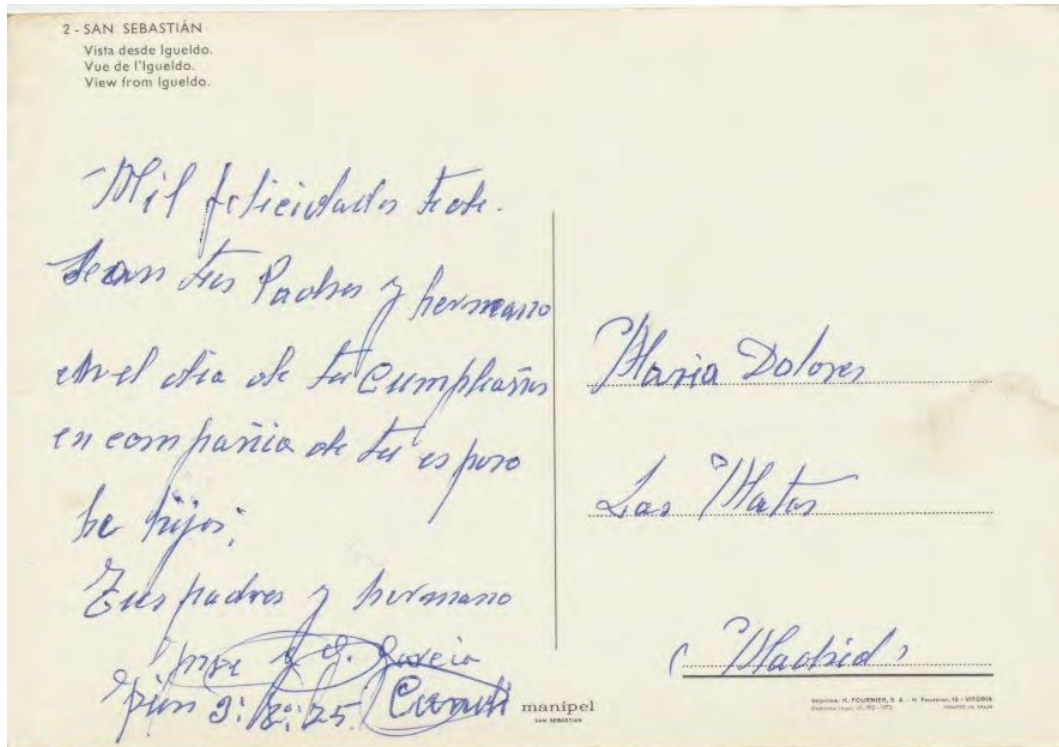 2 - SAN SEBASTIÁN
Vista desde Igueldo.
Vue de l'Igueldo.
View from Igueldo.
Mil felicidades te de-
sean tus Padres y hermano
en el dia de tu Cumpleaños
en compañia de tu esposo
he hijos;
Tus padres y hermano
García
María Dolores
Las Matas
(Madrid)
manípel
SAN SEBASTIÁN
Imprime: H. FOURNIER, S. A. - H. Fournier, 19 - VITORIA
PRINTED IN SPAIN